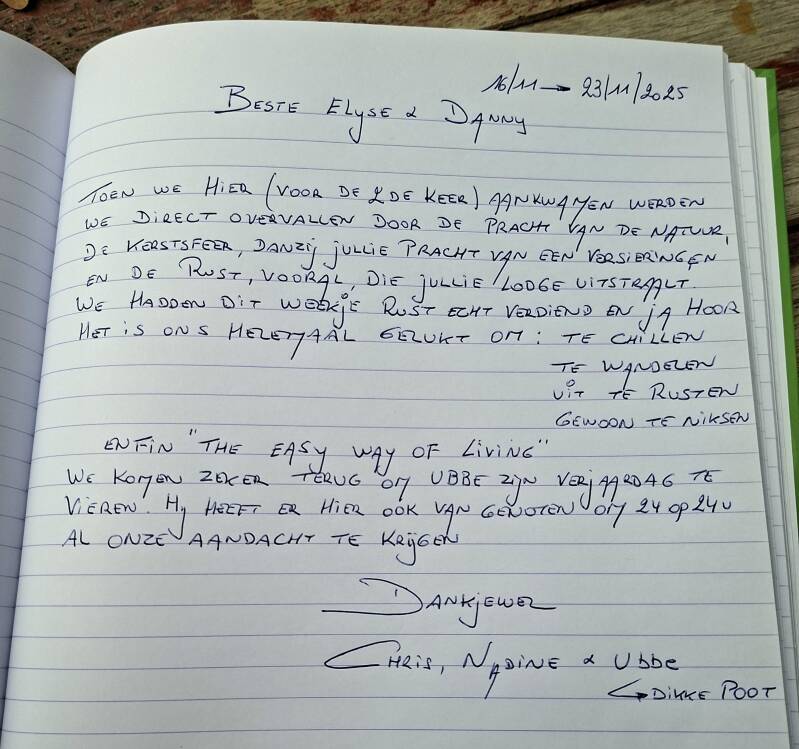 16/11 → 23/11/2025
BESTE ELYSE & DANNY
TOEN WE HIER (VOOR DE 2DE KEER) AANKWAMEN WERDEN
WE DIRECT OVERVALLEN DOOR DE PRACHT VAN DE NATUUR,
DE KERSTSFEER, DANZIJ JULLIE PRACHT VAN EEN VERSIERINGEN
EN DE RUST, VOORAL, DIE JULLIE LODGE UITSTRAALT.
WE HADDEN DIT WEEKJE RUST ECHT VERDIEND EN JA HOOR
HET IS ONS HELEMAAL GELUKT OM: TE CHILLEN
TE WANDELEN
UIT TE RUSTEN
GEWOON TE NIKSEN
ENFIN "THE EASY WAY OF LIVING"
WE KOMEN ZEKER TERUG OM UBBE ZIJN VERJAARDAG TE
VIEREN. HIJ HEEFT ER HIER OOK VAN GENOTEN OM 24 OP 24U
AL ONZE AANDACHT TE KRIJGEN
DANKJEWEL
CHRIS, NADINE & Ubbe
↳ DIKKE POOT